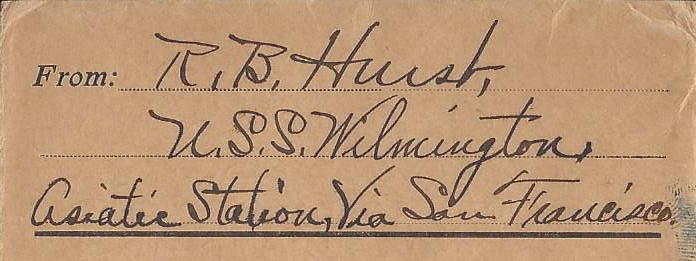 From: R. B. Hurst,
U.S.S. Wilmington,
Asiatic Station, Via San Francisco.